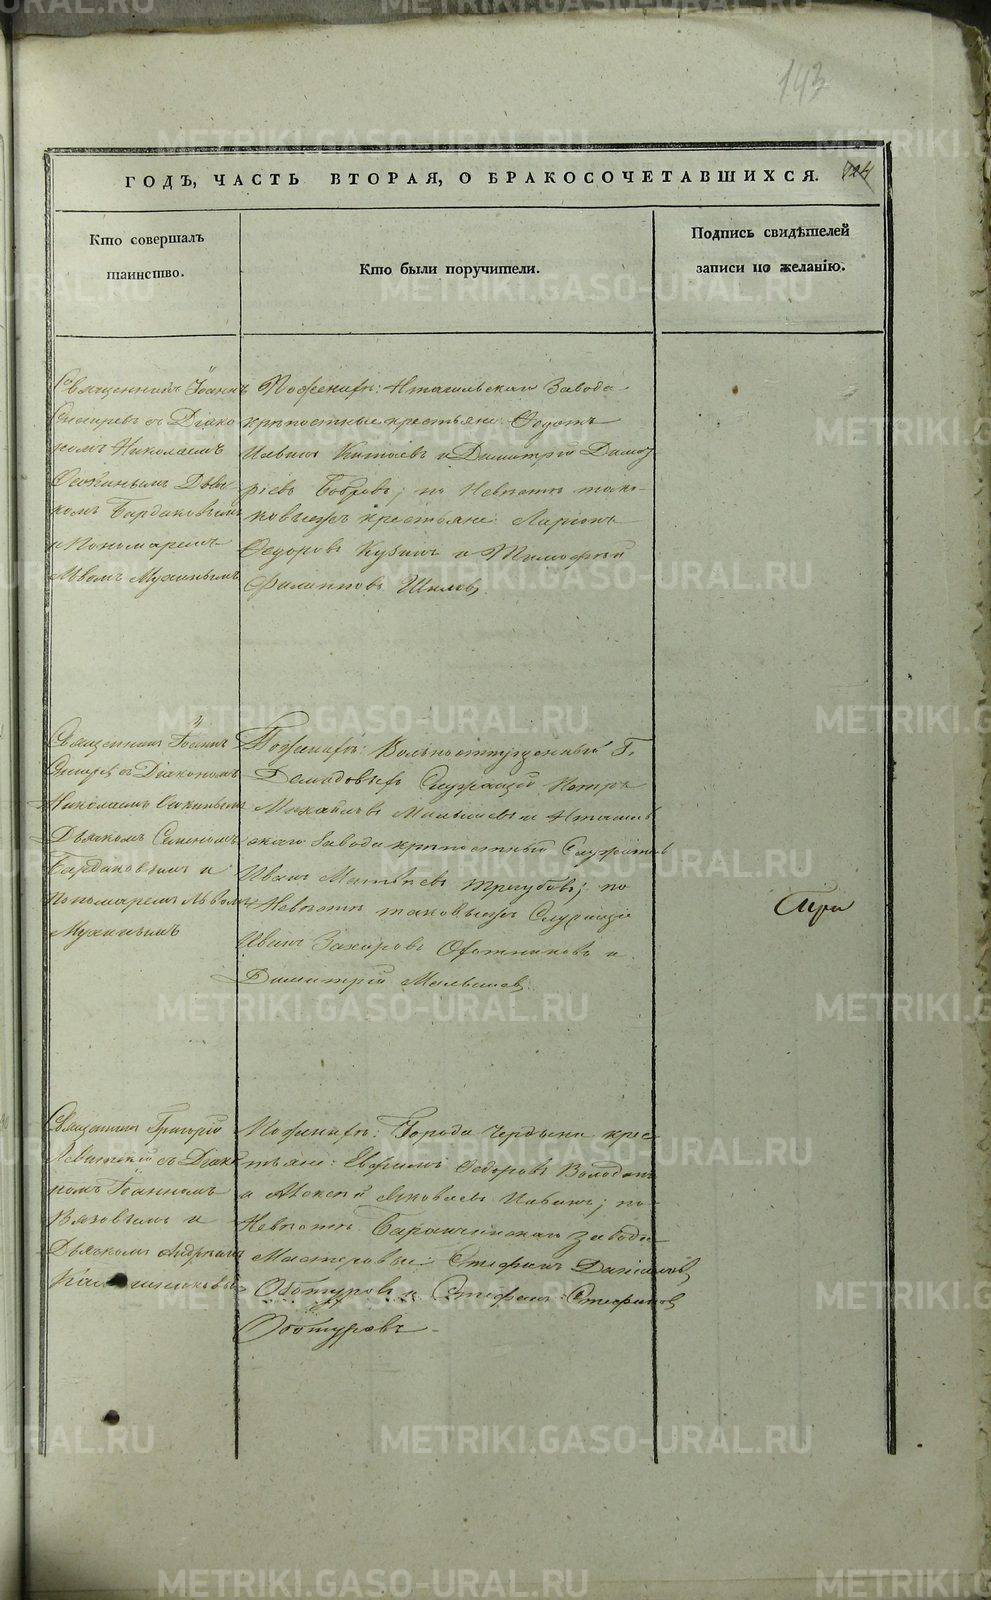 143
ГОДЪ, ЧАСТЬ ВТОРАЯ, О БРАКОСОЧЕТАВШИХСЯ.
Кто совершалъ
таинство.
Кто были поручители.
Подпись свидѣтелей
записи по желанію.
Священникъ Іоаннъ
съ Діако
номъ Николаемъ
Дьяч
комъ Бардаковымъ
и Пономаремъ
Львомъ Мухинымъ
По женихѣ: Нтагильскаго Завода
крѣпостные крестьяне: Федотъ
Ивановъ и Димитрій
Бобровъ; по Невѣстѣ тако
ковыежъ крестьяне: Ларіонъ
Федоровъ Кузинъ и Тимофей
Филипповъ
Священникъ Іоаннъ
съ Діакономъ
Николаемъ
Дьячкомъ Семеномъ
Бардаковымъ и
пономаремъ Львомъ
Мухинымъ
По женихѣ: Вольноотпущенный Г.
Демидовыхъ Служащій Петръ
Михайловъ и Нтагиль
скаго Завода крѣпостный Служитель
Иванъ Матвѣевъ Трегубовъ; по
Невѣстѣ таковыежъ Служащіе
Иванъ Захаровъ Охотниковъ и
Димитрій Малышевъ.
Три
Священникъ Григорій
Левитскій съ Діако
номъ Іоанномъ
Вязовымъ и
Дьячкомъ Андреемъ
По женихѣ: Города Чердыни крес
тьяне: Евфимъ Федоровъ
и Алексей Яковлевъ; по
Невѣстѣ Баранчинскаго завода
Мастеровые: Стефанъ Даниловъ
Обтуровъ и Стефанъ Стефановъ
Обтуровъ
METRIKI.GASO-URAL.RU